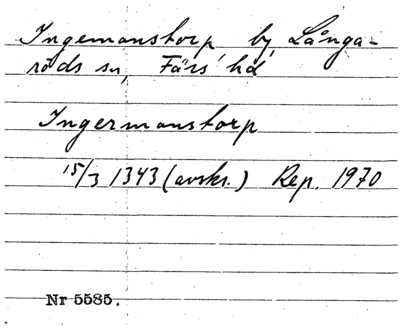 Ingemanstorp by, Långa-
röds sn, Färs hd
Ingermanstorp
15/3 1343 (avskr.) Rep. 1970
Nr 5585.